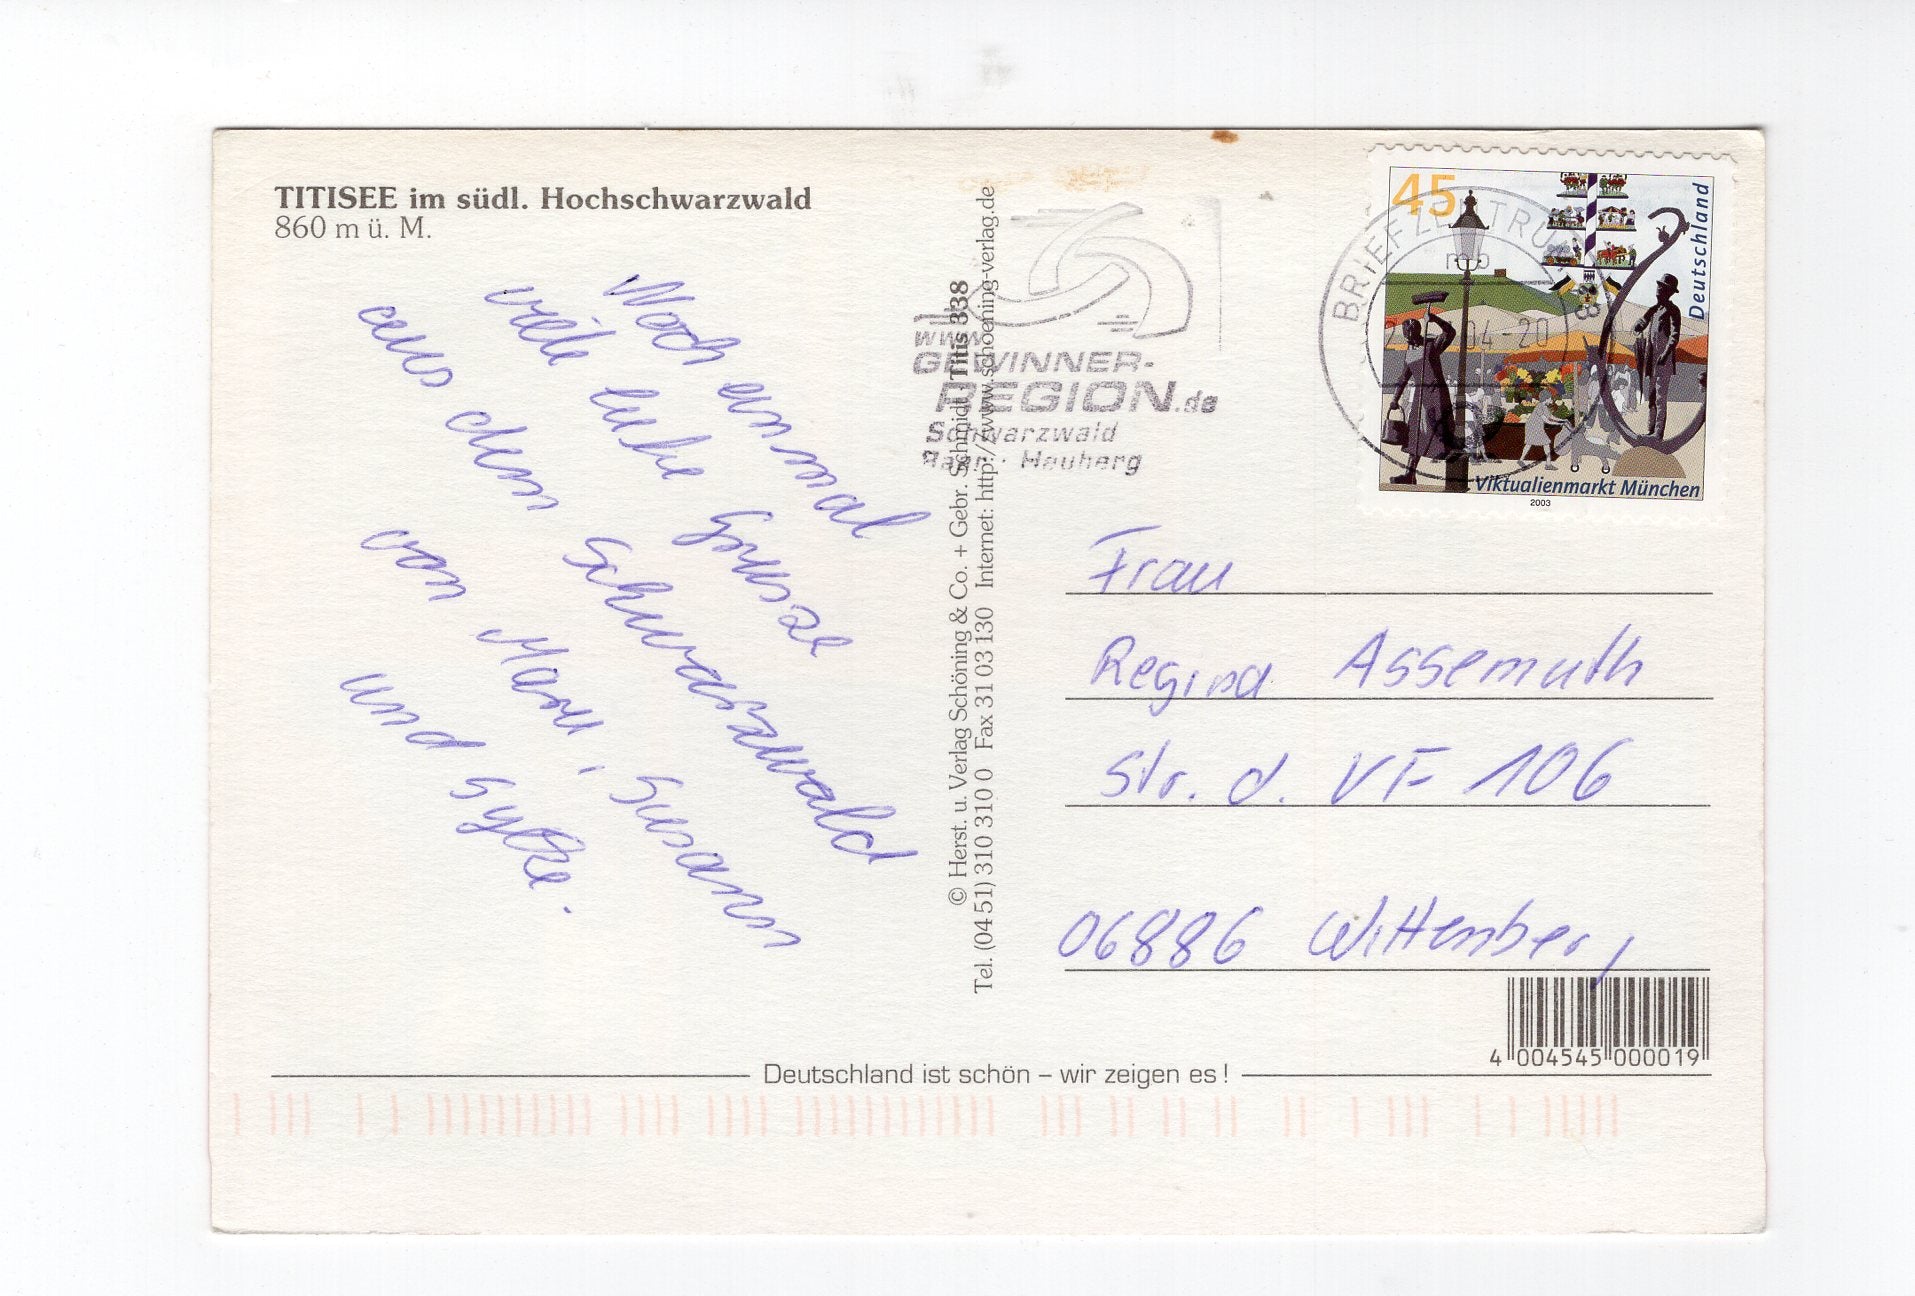 TITISEE im südl. Hochschwarzwald
860 m ü. M.
Noch einmal
viele liebe Grüsse
aus dem Schwarzwald
von Susann
und
© Herst. u. Verlag Schöning & Co. + Gebr. Schmidt Titis 338
Tel. (04 51) 310 310 0 Fax 31 03 130 Internet: http://www.schoening-verlag.de
www.
GEWINNER-
REGION.de
Schwarzwald
Baar · Heuberg
BRIEFZENTRUM 78
mb
04-20
45
Deutschland
Viktualienmarkt München
2003
Frau
Regina Assemuth
Str. d. VF 106
06886 Wittenberg
4 004545 000019
Deutschland ist schön – wir zeigen es !